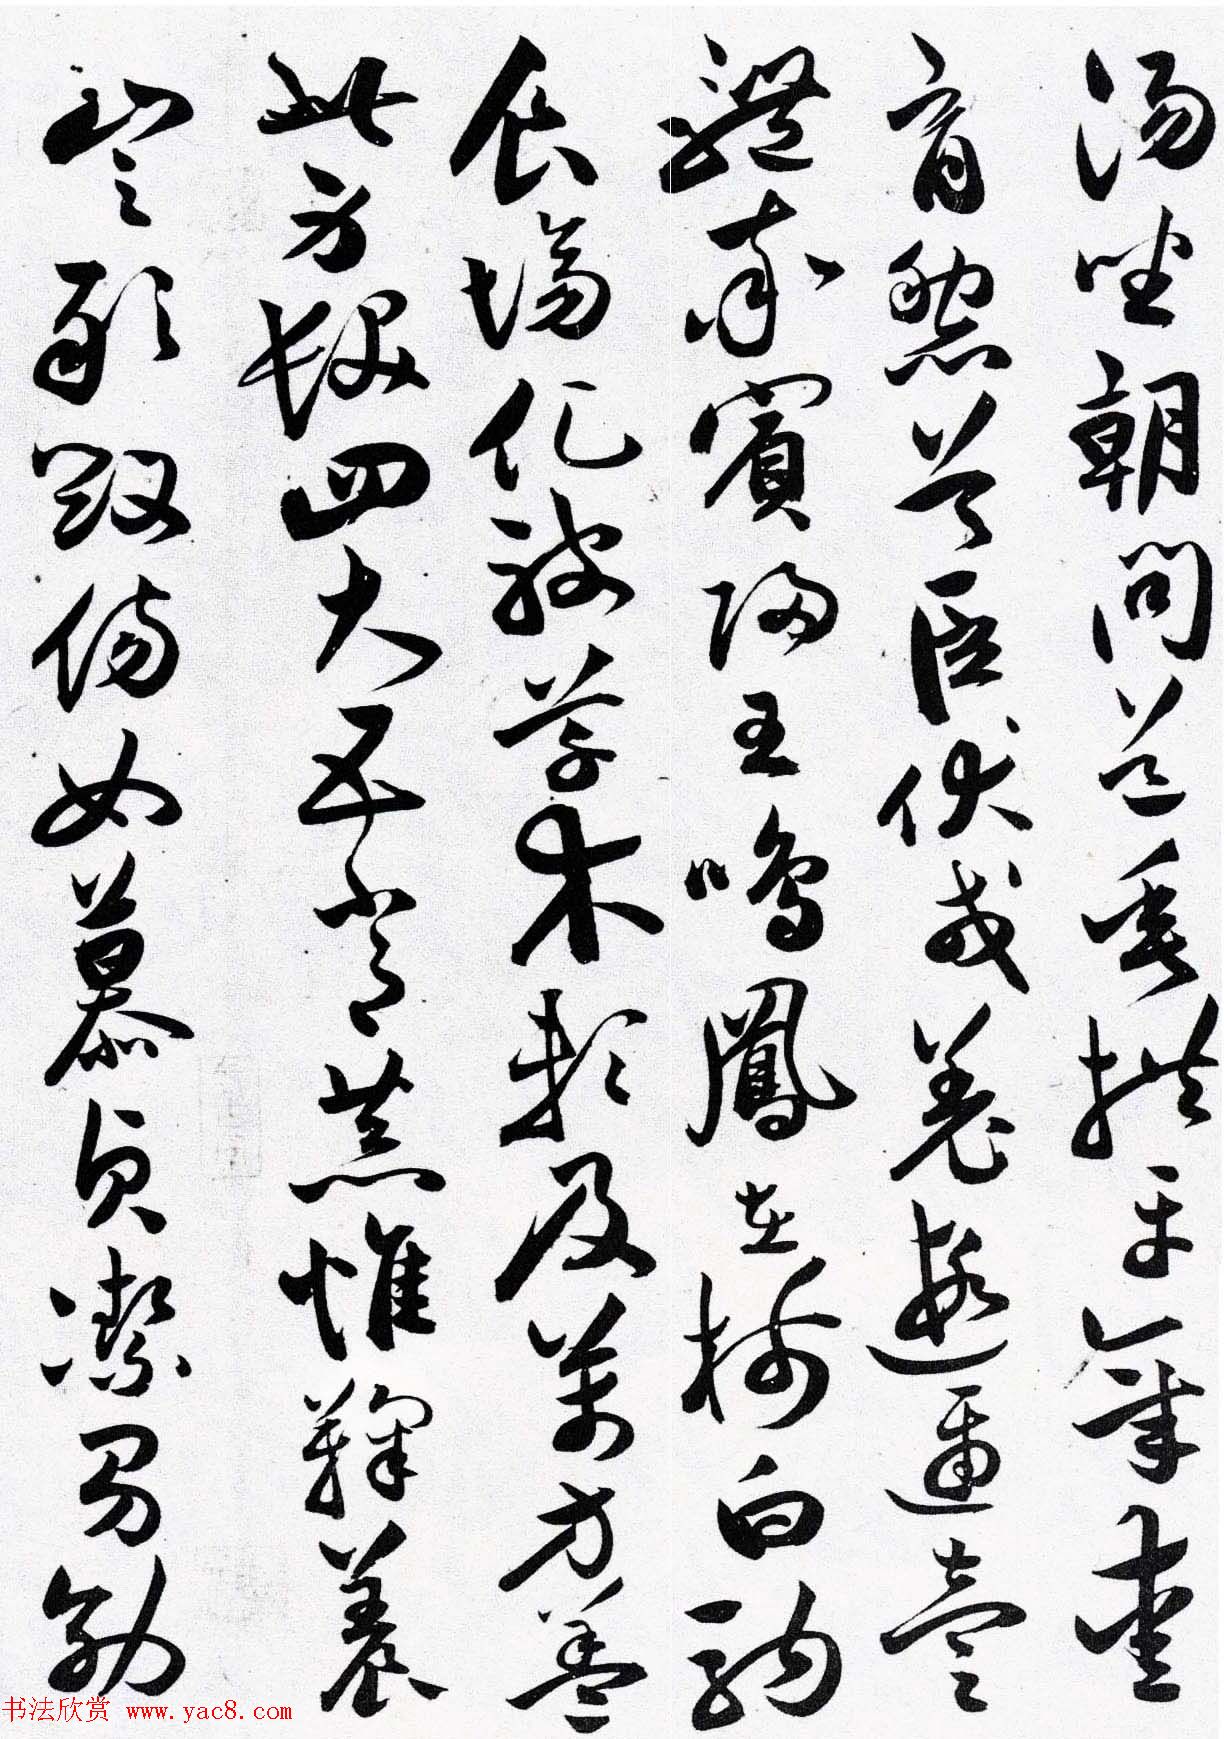 湯坐朝問道垂拱平章愛
育黎首臣伏戎羌遐邇壹
體率賓歸王鳴鳳在樹白駒
食場化被草木賴及萬方蓋
此身髮四大五常恭惟鞠養
豈敢毀傷女慕貞潔男効
书法欣赏 www.yac8.com